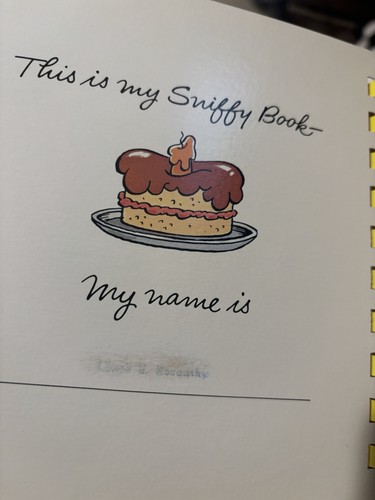 This is my Sniffy Book—
My name is